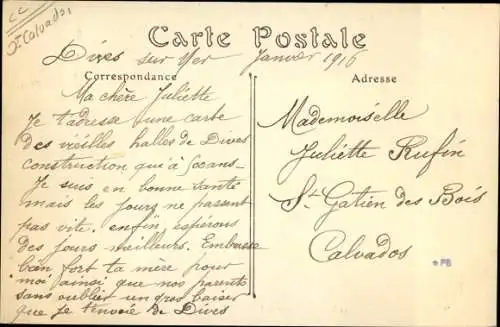 Ct Calvados
Carte Postale
Dives sur Mer Janvier 1916
Correspondance
Adresse
Ma chère Juliette
Je t'adresse une carte
des vieilles halles de Dives
construction qui à 500 ans_
Je suis en bonne santé
mais les jours ne passent
pas vite. enfin, espérons
des jours meilleurs. Embrasse
bien fort ta mère pour
moi ainsi que nos parents
sans oublier un gros baiser
que je t'envoie de Dives
Mademoiselle
Juliette Rufin
St Gatien des Bois
Calvados
PB